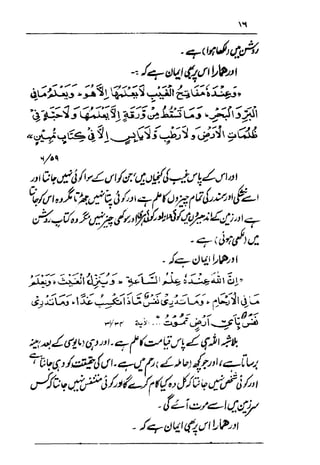 ۱۶
روشن میں (لکھا ہوا) ہے ۔
اور ہمارا اس پر بھی ایمان ہے کہ :-
"وَعِنْدَهُ مَفَاتِحُ الْغَيْبِ لَا يَعْلَمُهَا إِلَّا هُوَ، وَيَعْلَمُ مَا فِي
الْبَرِّ وَالْبَحْرِ، وَمَا تَسْقُطُ مِنْ وَرَقَةٍ إِلَّا يَعْلَمُهَا وَلَا حَبَّةٍ فِي
ظُلُمَاتِ الْأَرْضِ وَلَا رَطْبٍ وَلَا يَابِسٍ إِلَّا فِي كِتَابٍ مُبِينٍ"
۶/۵۹
اور اس کے پاس غیب کی کنجیاں ہیں جن کو اس کے سوا کوئی نہیں جانتا اور
اسے خشکی اور سمندر کی تمام چیزوں کا علم ہے اور کوئی پتا نہیں جھڑتا مگر وہ اس کو جانتا
ہے اور زمین کے اندھیروں میں کوئی دانہ اور کوئی ہری اور سوکھی چیز نہیں مگر وہ کتاب روشن
میں (لکھی ہوئی) ہے ۔
اور ہمارا ایمان ہے کہ ۔
"إِنَّ اللهَ عِنْدَهُ عِلْمُ السَّاعَةِ، وَيُنَزِّلُ الْغَيْثَ، وَيَعْلَمُ
مَا فِي الْأَرْحَامِ، وَمَا تَدْرِي نَفْسٌ مَاذَا تَكْسِبُ غَدًا، وَمَا تَدْرِي
نَفْسٌ بِأَيِّ أَرْضٍ تَمُوتُ" الآیۃ ۳۱/۳۴
بلاشبہ اللہ ہی کے پاس قیامت کا علم ہے ۔ اور وہی (مایوسی کے بعد) مینہ
برساتا ہے، اور جو کچھ (حاملہ کے) رحم میں ہے ۔ اس کی حقیقت کو وہی جانتا ہے
اور کوئی شخص نہیں جانتا کہ کل وہ کیا کام کرے گا اور کوئی متنفس نہیں جانتا کہ کس
سرزمین میں اسے موت آئے گی ۔
اور ہمارا اس پر بھی ایمان ہے کہ ۔